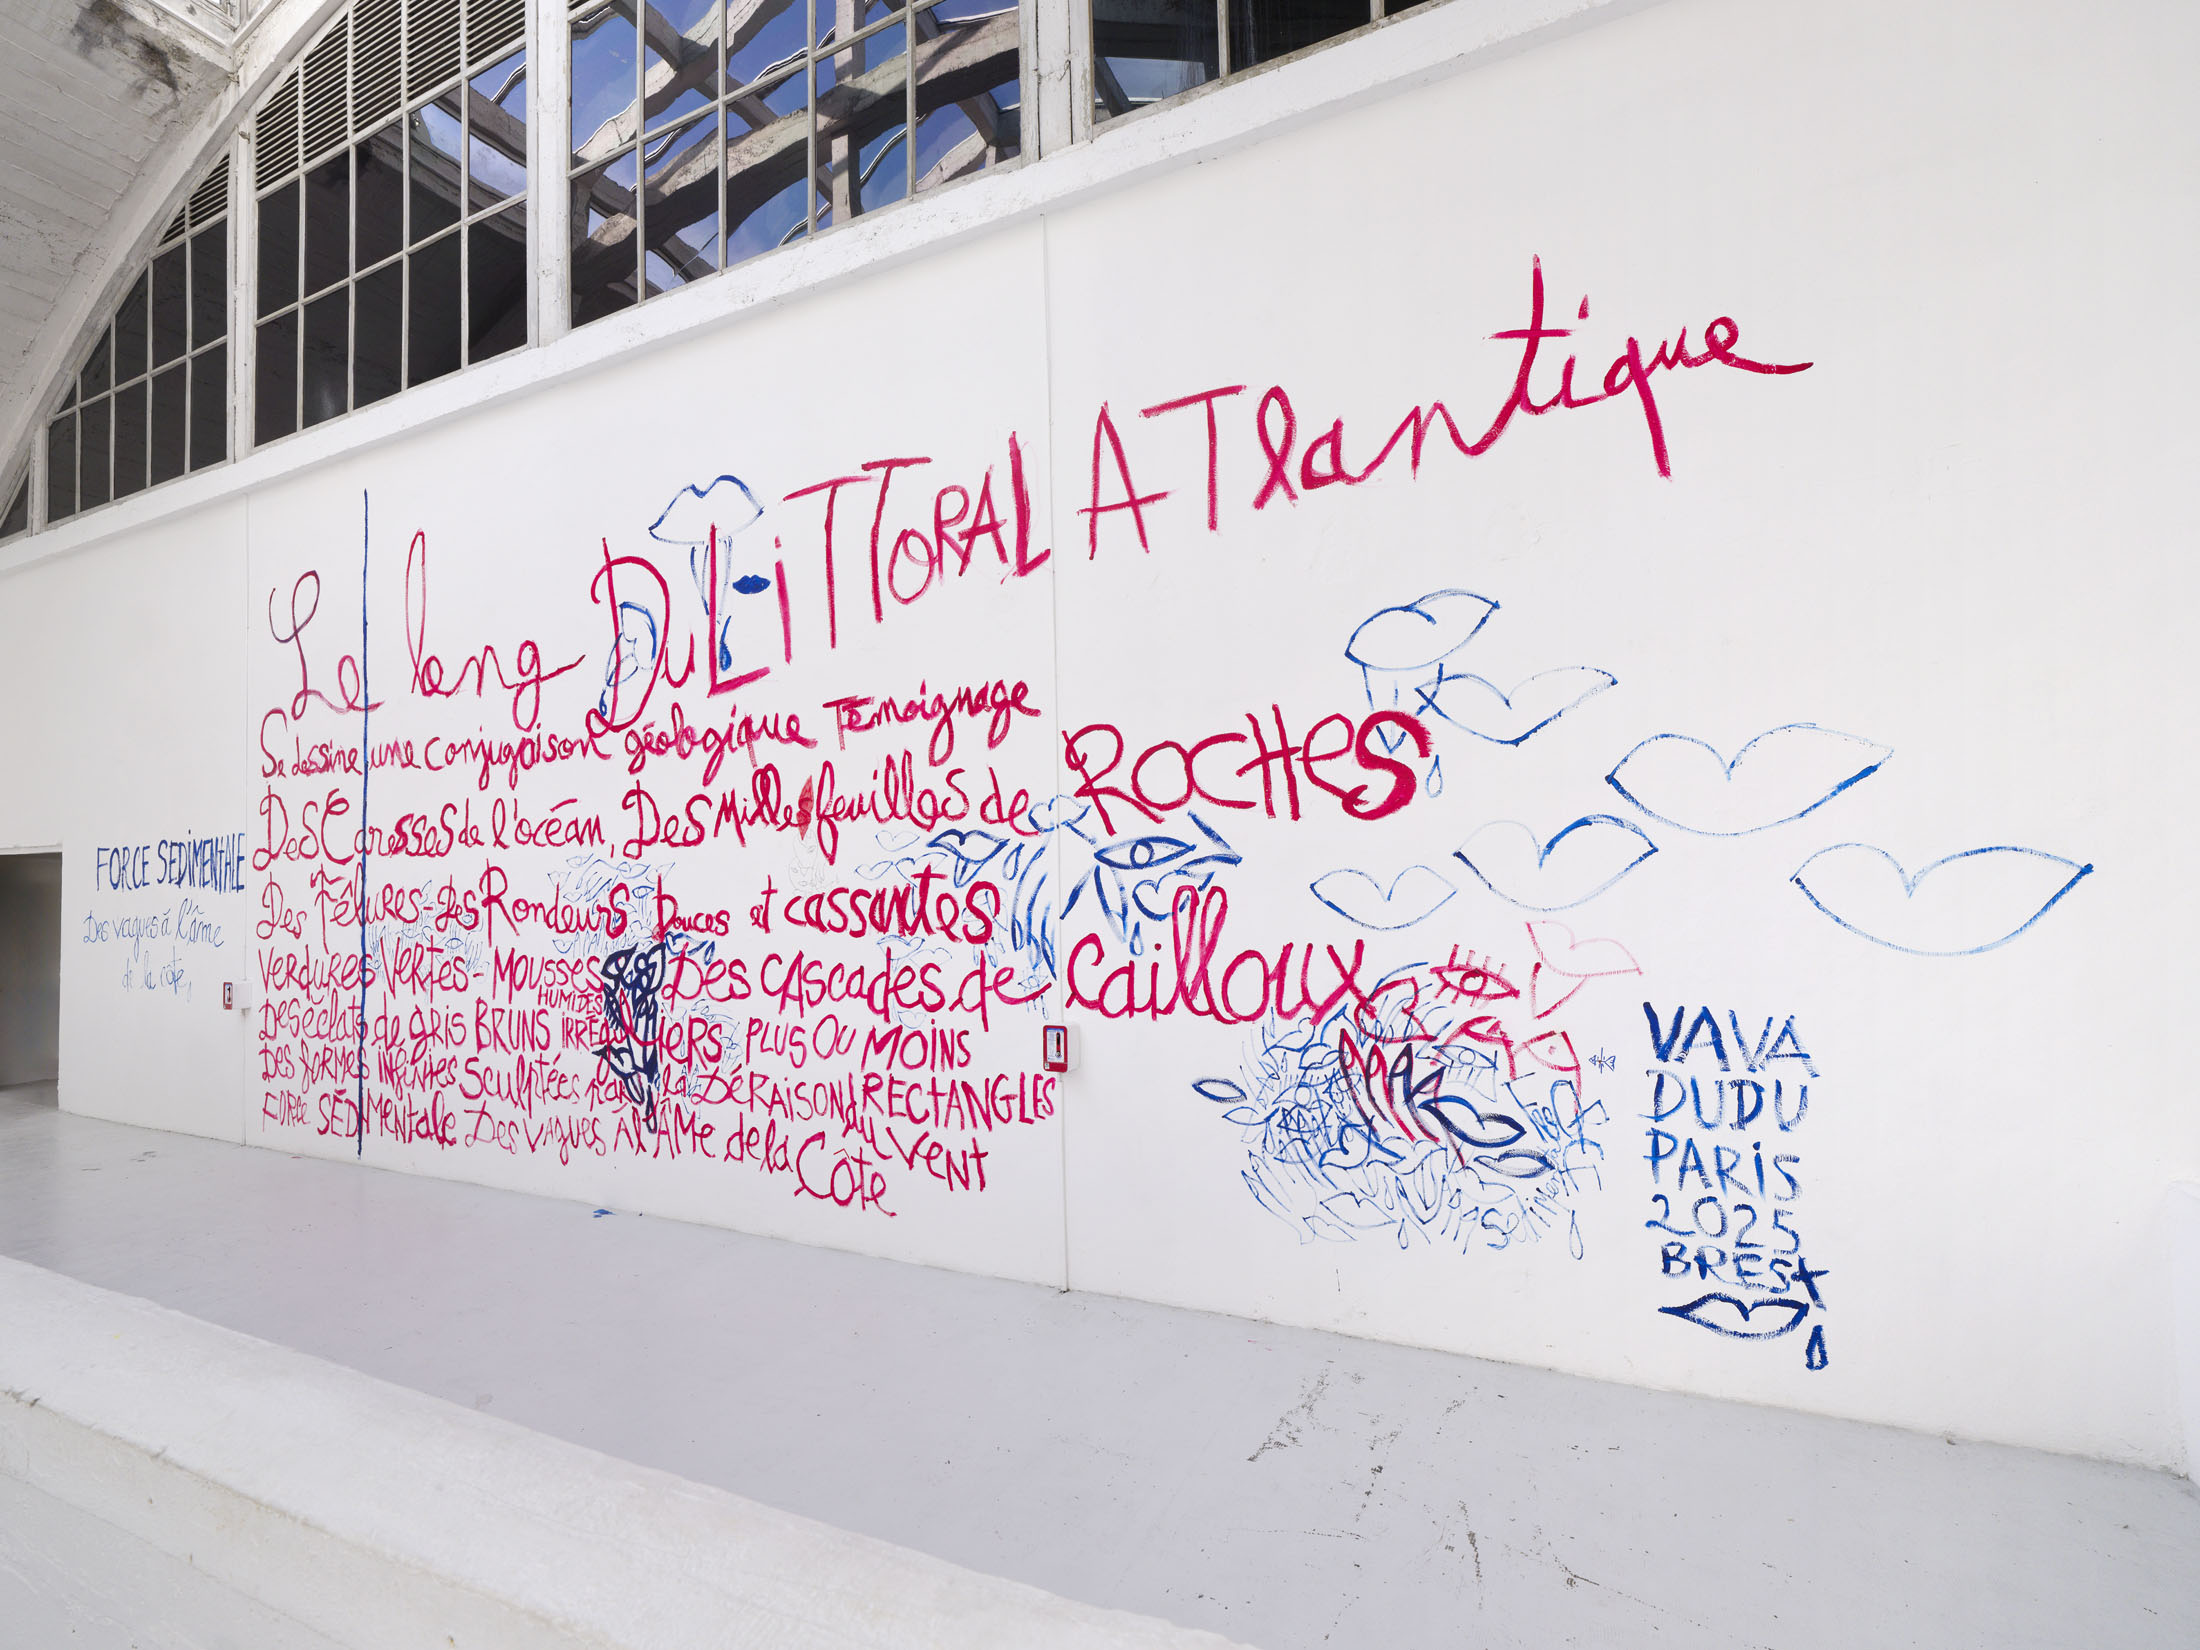 Le long Du LiTTORAL ATlantique
Se dessine une conjugaison géologique Témoignage
Des Caresses de l'océan, Des Millesfeuilles de ROCHES
Des Fêlures - Des Rondeurs Douces et cassantes
Verdures Vertes - Mousses Des CAScades de Cailloux
HUMIDES
Des éclats de gris BRUNS irréguliers PLUS OU MOINS
Des formes infinies Sculptées par la DÉRAISON RECTANGLES
du Vent
Force SÉDIMentale Des vagues à l'ÂMe de la Côte
FORCE SEDIMENtALE
Des vagues à l'âme
de la côte
VAVA
DUDU
PARiS
2025
BREST